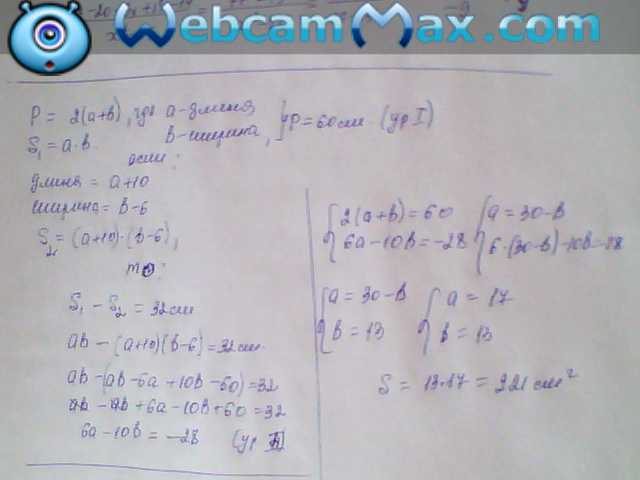 WebcamMax.com
P = 2(a+b), где a-длина
b-ширина, } P=60см. (ур I)
S₁ = a·b.
если:
длина = a+10
ширина = b-6
S₂ = (a+10)·(b-6),
то:
S₁ - S₂ = 32см
ab - (a+10)(b-6) = 32см.
ab - (ab - 6a + 10b - 60) = 32
ab - ab + 6a - 10b + 60 = 32
6a - 10b = -28 (ур II)
{ 2(a+b) = 60 { a = 30-b
{ 6a - 10b = -28 { 6·(30-b) - 10b = -28
{ a = 30-b { a = 17
{ b = 13 { b = 13
S = 13·17 = 221 см²